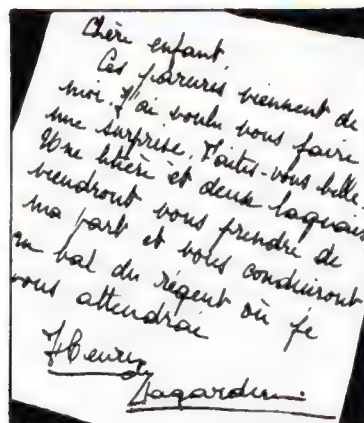 Chère enfant
Ces parures viennent de
moi. J'ai voulu vous faire
une surprise. Faites-vous belle.
Une litière et deux laquais
viendront vous prendre de
ma part et vous conduiront
au bal du régent où je
vous attendrai
Henri de
Lagardère